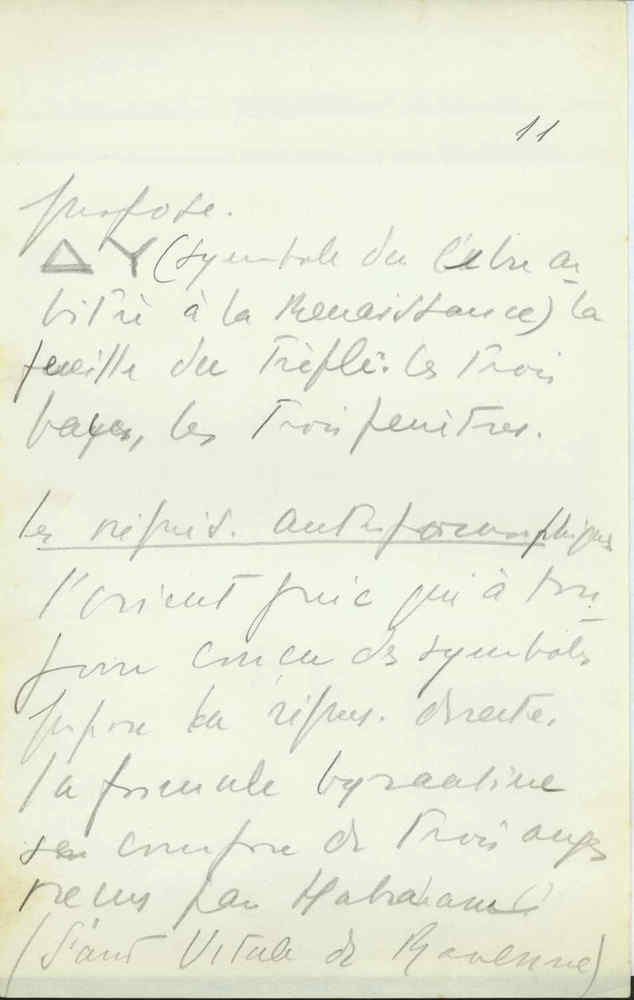 11
propose.
△ Y (symbole du libre ar-
bitre à la Renaissance) la
feuille du Trèfle. les Trois
bayes, les Trois fenêtres.
les représ. anthropomorphiques
l'orient grec qui à tou-
jours concu des symboles
propose la représ. directe.
la formule byzantine
se compose de Trois anges
recus par Habraham
(Sant Vitale de Ravenne)